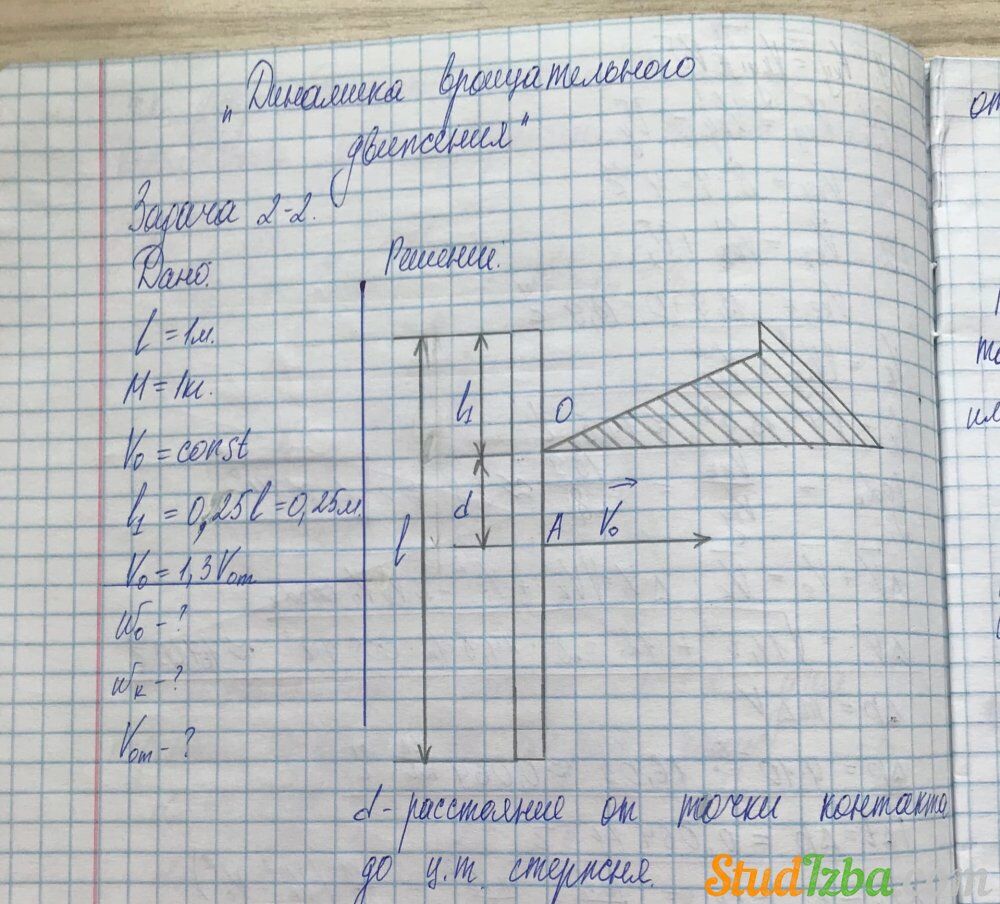 "Динамика вращательного
движения"
Задача 2-2.
Дано:
Решение:
l = 1м.
M = 1кг.
V₀ = const
l₁ = 0,25l = 0,25м.
V₀ = 1,3Vот
ω₀ - ?
ωк - ?
Vот - ?
l₁
O
d
A
V₀
l
d - расстояние от точки контакта
до ц.т. стержня.
от
StudIzba